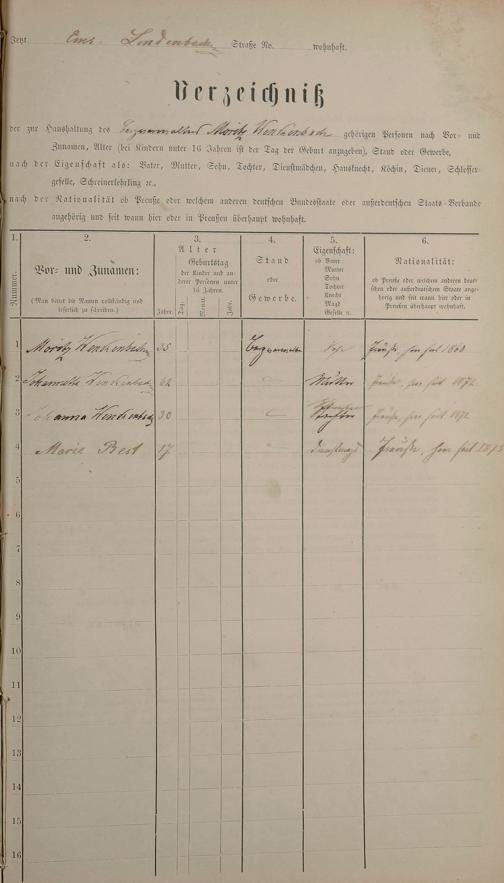 Jetzt Ems. Lindenbach Straße No. wohnhaft.
Verzeichniß
der zur Haushaltung des Bergverwalters Moritz Wenckenbach gehörigen Personen nach Vor- und
Zunamen, Alter (bei Kindern unter 16 Jahren ist der Tag der Geburt anzugeben), Stand oder Gewerbe,
nach der Eigenschaft als: Vater, Mutter, Sohn, Tochter, Dienstmädchen, Hausknecht, Köchin, Diener, Schlosser-
geselle, Schreinerlehrling ꝛc.,
nach der Nationalität ob Preuße oder welchem anderen deutschen Bundesstaate oder außerdeutschen Staats-Verbande
angehörig und seit wann hier oder in Preußen überhaupt wohnhaft.
1.
Nummer.
2.
Vor- und Zunamen:
(Man bittet die Namen vollständig und
leserlich zu schreiben.)
3.
Alter
Geburtstag
der Kinder und an-
derer Personen unter
16 Jahren.
Jahre. Tag. Monat. Jahr.
4.
Stand
oder
Gewerbe.
5.
Eigenschaft:
ob Vater
Mutter
Sohn
Tochter
Knecht
Magd
Geselle ꝛc.
6.
Nationalität:
ob Preuße oder welchem anderen deut-
schen oder außerdeutschen Staate ange-
hörig und seit wann hier oder in
Preußen überhaupt wohnhaft.
1 Moritz Wenckenbach 35 Bergverwalter Sohn Preuße, hier seit
2 Johannette Wenckenbach 62 Mutter Preuße, hier seit 1872
3 Johanna Wenckenbach 30 Tochter Preuße, hier seit 1872
4 Marie Best 17 Dienstmagd Preuße, hier seit 1875
5
6
7
8
9
10
11
12
13
14
15
16